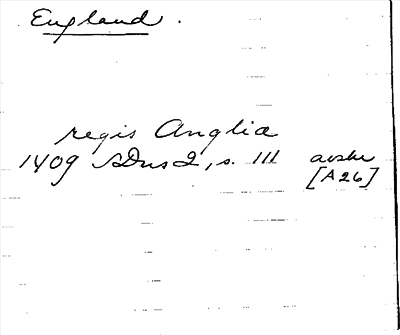 England.
regis Anglia
1409 SDns2, s. 111 avskr
[A26]